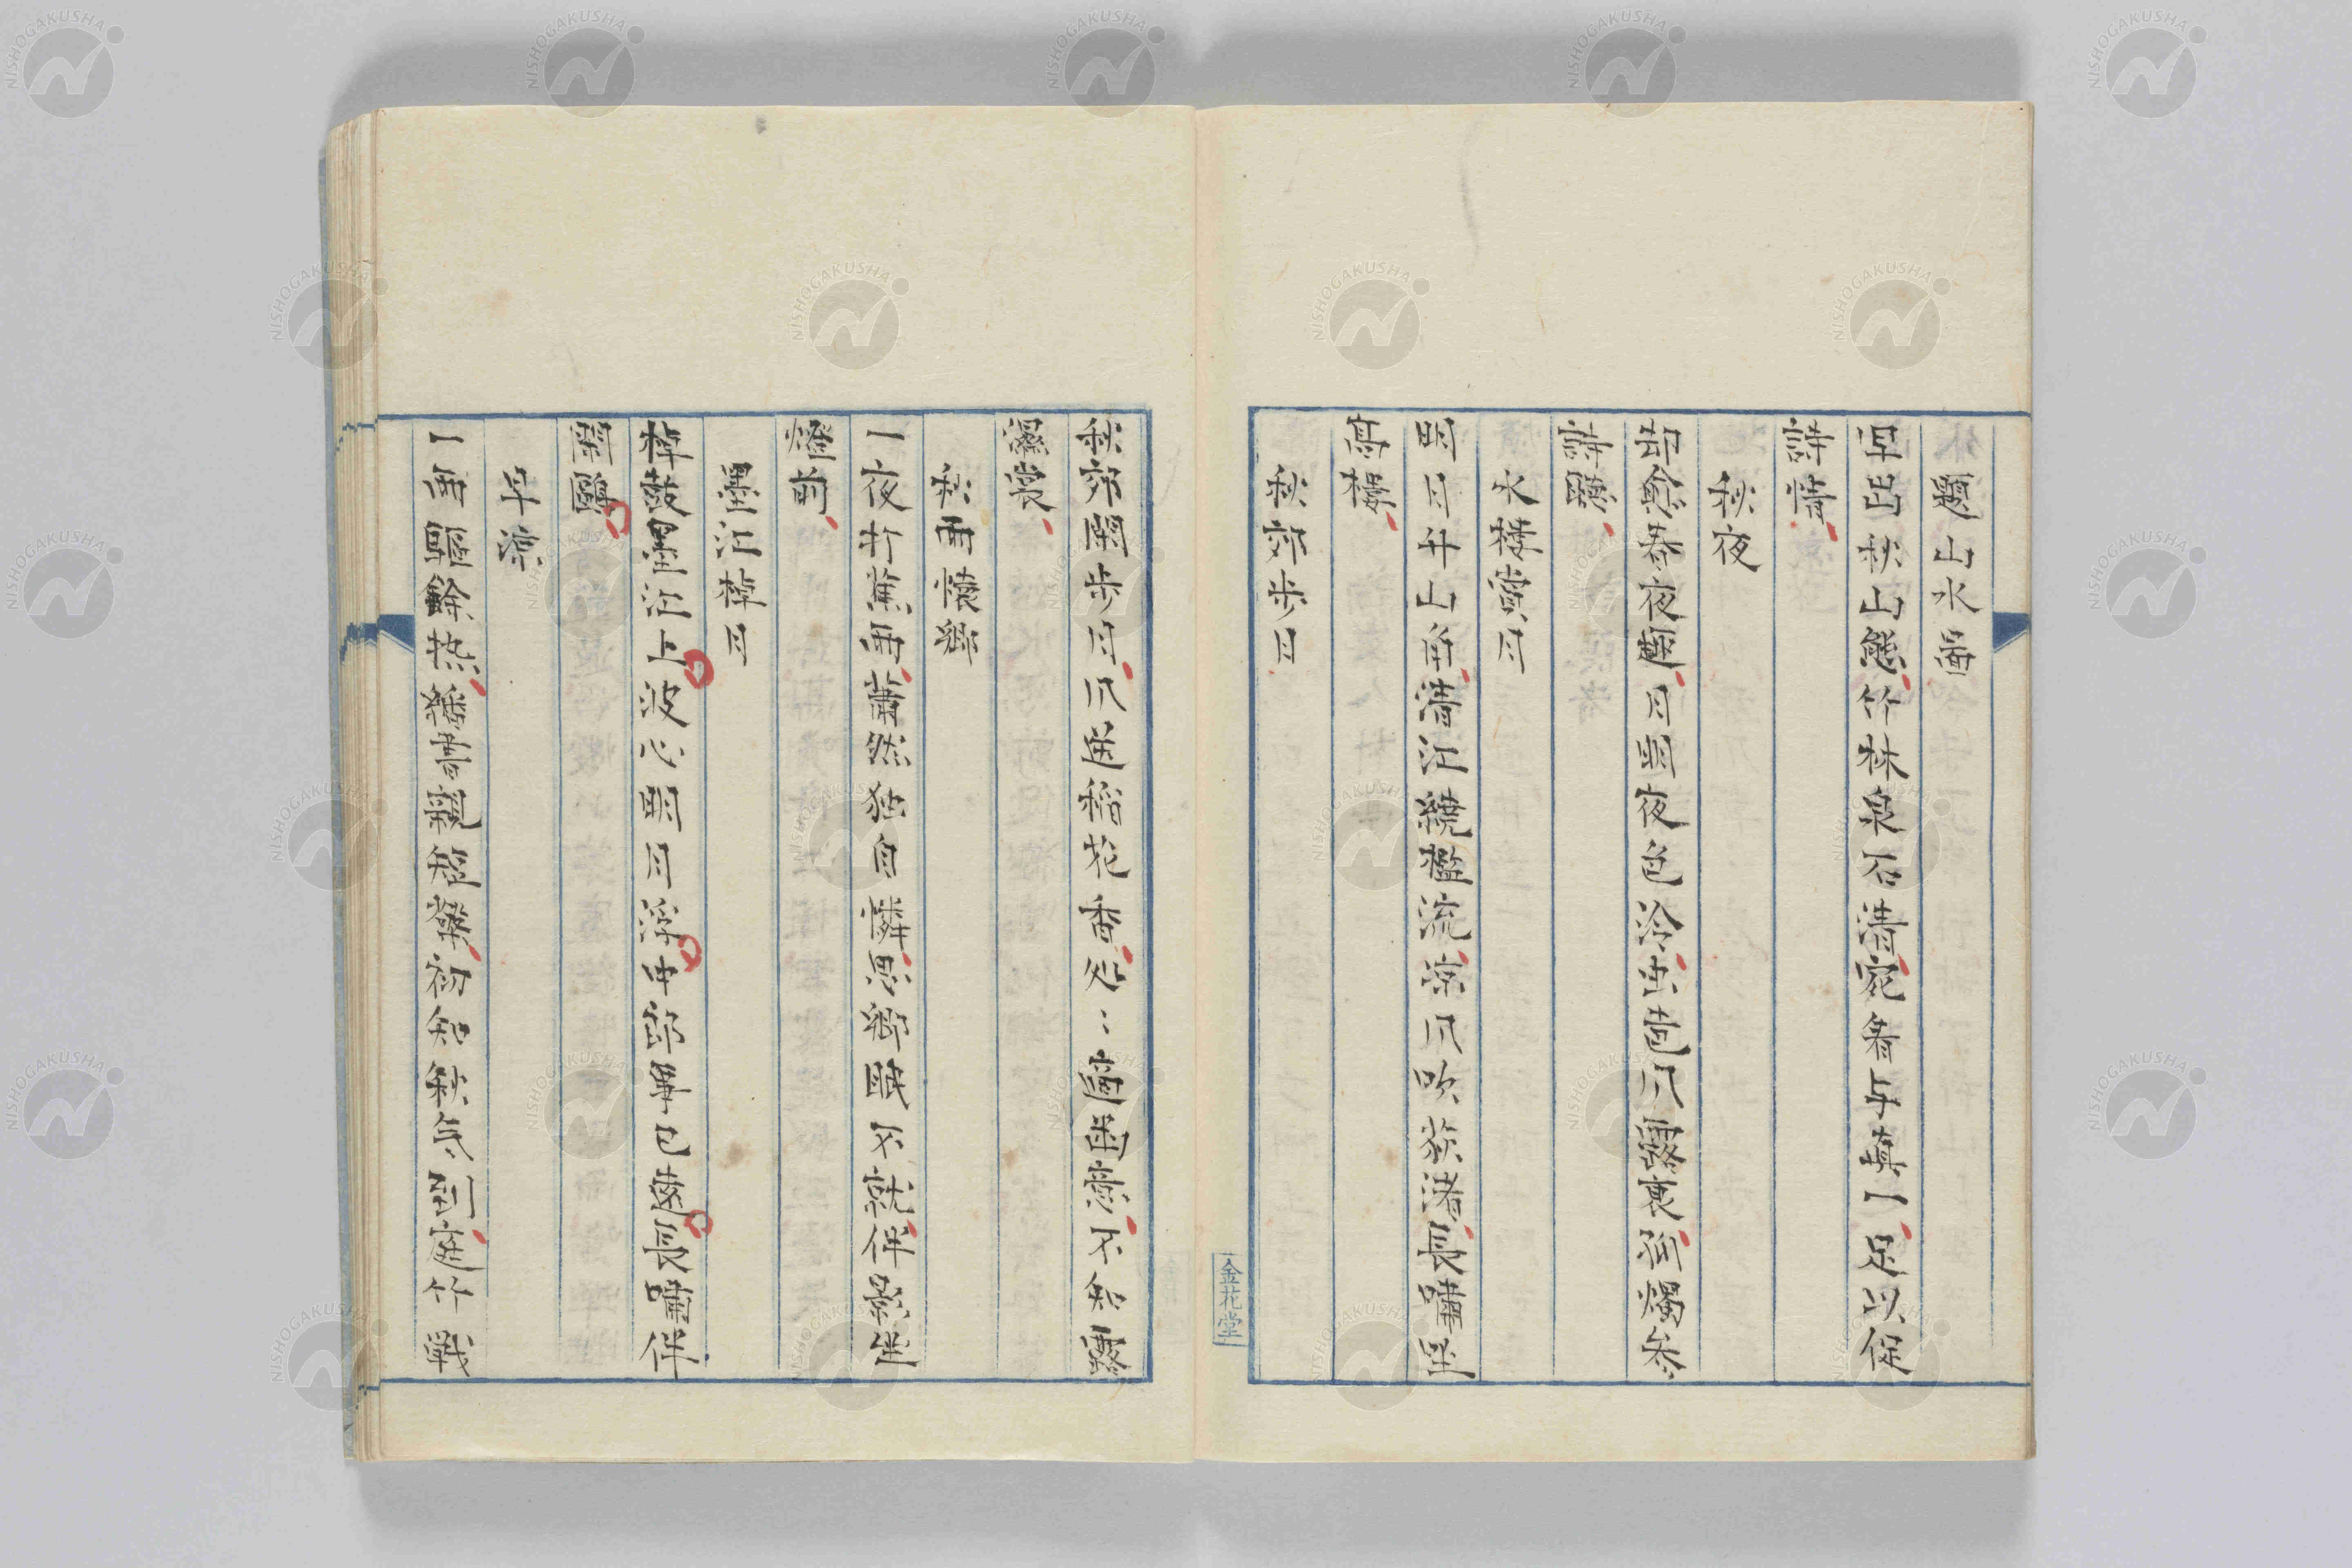 題山水画
早出秋山態竹林泉石清宛看与真一足以促
詩情
秋夜
却勝春夜趣月明夜色冷虫声風露裏何燭参
詩興
水楼賞月
明月升山角清江繞檻流涼風吹荻渚長嘯坐
高楼
秋郊歩月
秋郊閑歩月風送稲花香処〻蛩虫声不知露
湿裳
秋雨懐郷
一夜打蕉雨蕭然独自憐思郷眠不就伴影坐
燈前
墨江棹月
棹歌墨江上波心明月浮世尘無已遠長嘯伴
閑鷗
早涼
一雨駆餘热稍喜親短檠初知秋気到庭竹戦
金花堂
NISHOGAKUSHA